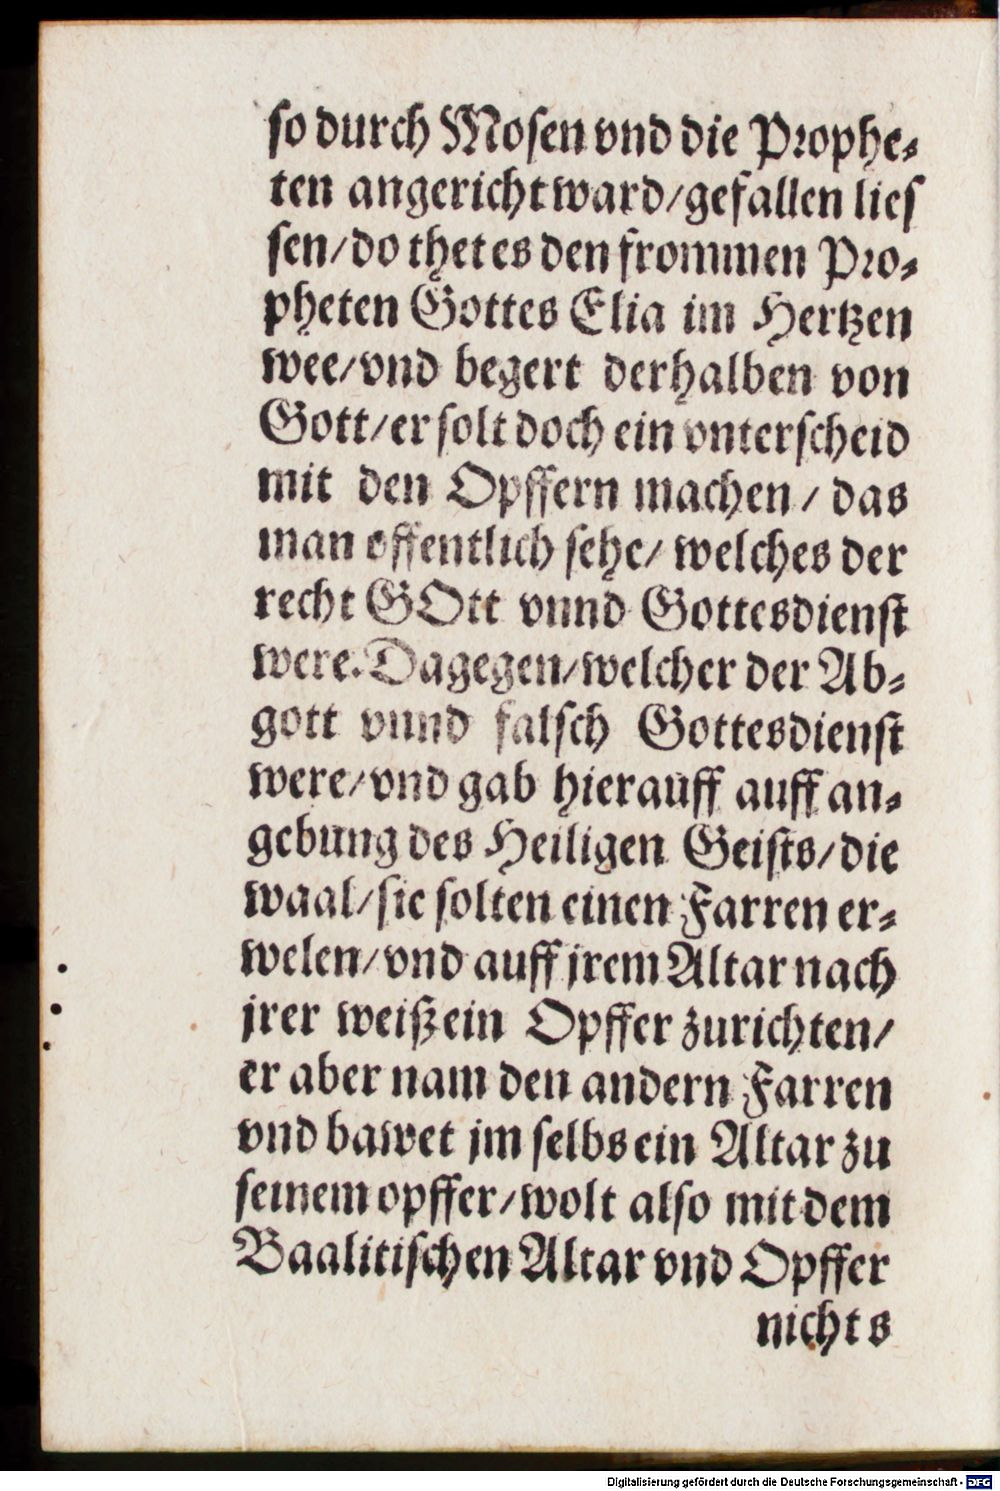 so durch Mosen vnd die Prophe-
ten angericht ward/gefallen lies
sen/do thet es den frommen Pro-
pheten Gottes Elia im Hertzen
wee/vnd begert derhalben von
Gott/er solt doch ein vnterscheid
mit den Opffern machen/ das
man offentlich sehe/ welches der
recht GOtt vnnd Gottesdienst
were. Dagegen/welcher der Ab-
gott vnnd falsch Gottesdienst
were/vnd gab hierauff auff an-
gebung des Heiligen Geists/die
waal/sie solten einen Farren er-
welen/vnd auff jrem Altar nach
jrer weiß ein Opffer zurichten/
er aber nam den andern Farren
vnd bawet jm selbs ein Altar zu
seinem opffer/wolt also mit dem
Baalitischen Altar vnd Opffer
nichts
Digitalisierung gefördert durch die Deutsche Forschungsgemeinschaft - DFG